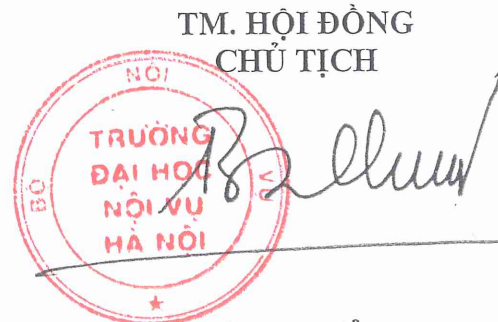 TM. HỘI ĐỒNG
CHỦ TỊCH
BỘ NỘI VỤ
TRƯỜNG
ĐẠI HỌC
NỘI VỤ
HÀ NỘI